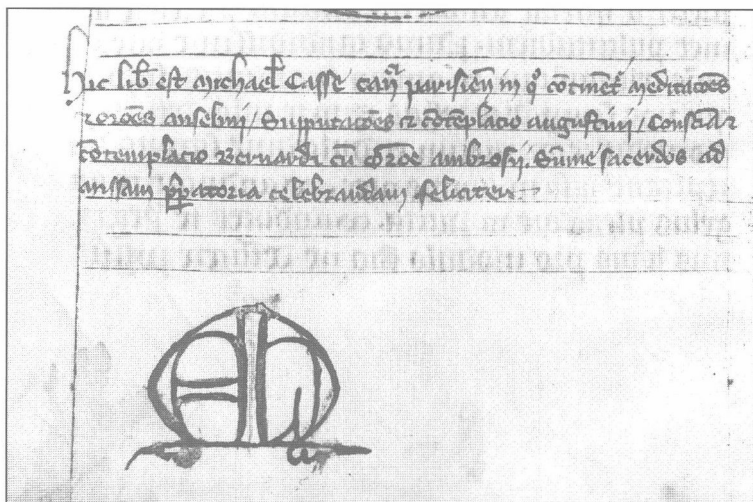 Hic lib̄ est Michael̄ Casse can̄ parisien̄ in qͦ cōtinet᷑ meditacōes
⁊ orōes anselmi / Supputacōes ⁊ cōtēplacio augustini / Consciā ⁊
cōtemplacio Bernardi cū orōe ambrosij. Sūme sacerdos ad
missam p̄paratoria celebrandam feliciter